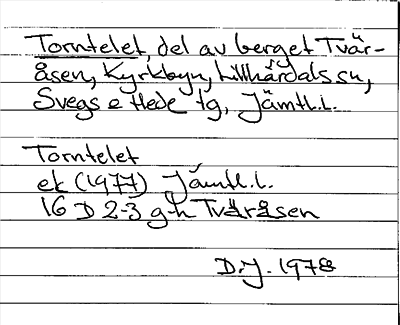 Torntelet, del av berget Tvär-
åsen, Kyrkbyn, Lillhärdals sn,
Svegs o Hede tg, Jämtl.l.
Torntelet
ek (1977) Jämtl.l.
16 D 2-3 g-h Tväråsen
D.J. 1978